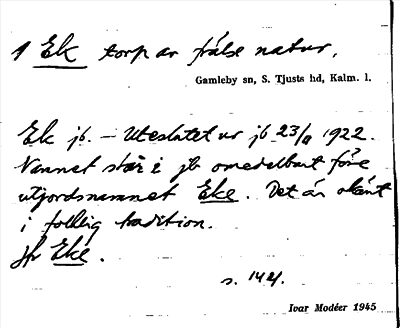 1 Ek torp av frälse natur.
Gamleby sn, S. Tjusts hd, Kalm. l.
Ek jb. – Uteslutet ur jb 23/9 1922.
Namnet står i jb omedelbart före
utjordsnamnet Eke. Det är okänt
i folklig tradition.
Jfr Eke.
s. 1421.
Ivar Modéer 1945